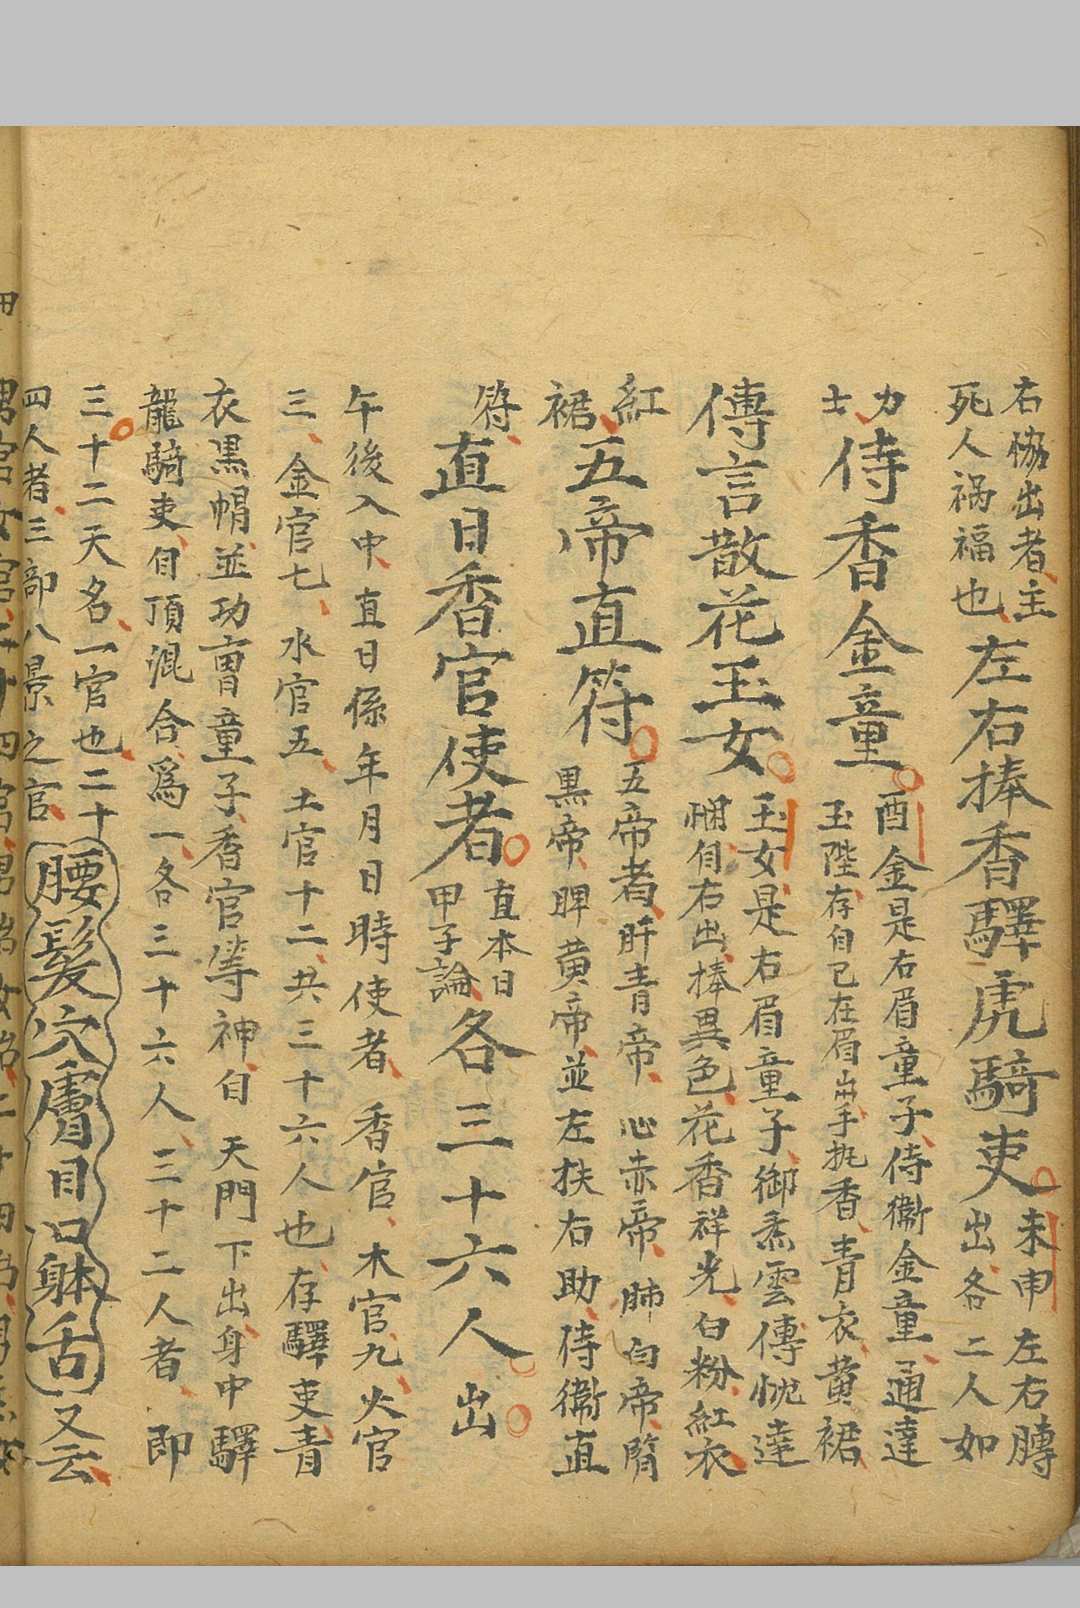 右恊出者主
死人祸福也
左右捧香驛虎騎吏
未申左右膊
出各二人如
力
士
侍香金童
酉金是右眉童子侍衞金童通達
玉陛存自已在眉出手执香青衣黄裙
傳言散花玉女
玉女是右眉童子御炁雲傳忱達
悃自右出捧異色花香祥光白粉紅衣
紅
裙
五帝直符
五帝者肝青帝心赤帝肺白帝腎
黑帝脾黄帝並左扶右助侍衞直
符
直日香官使者
直本日
甲子論
各三十六人
出
午後入中直日係年月日時使者香官木官九火官
三金官七水官五土官十二共三十六人也存驛吏青
衣黑帽並功曹童子香官等神自天門下出身中驛
龍騎吏自頂混合爲一各三十六人三十二人者即
三十二天名一官也二十
四人者三部八景之官
腰髮穴膚目口躰舌
又云